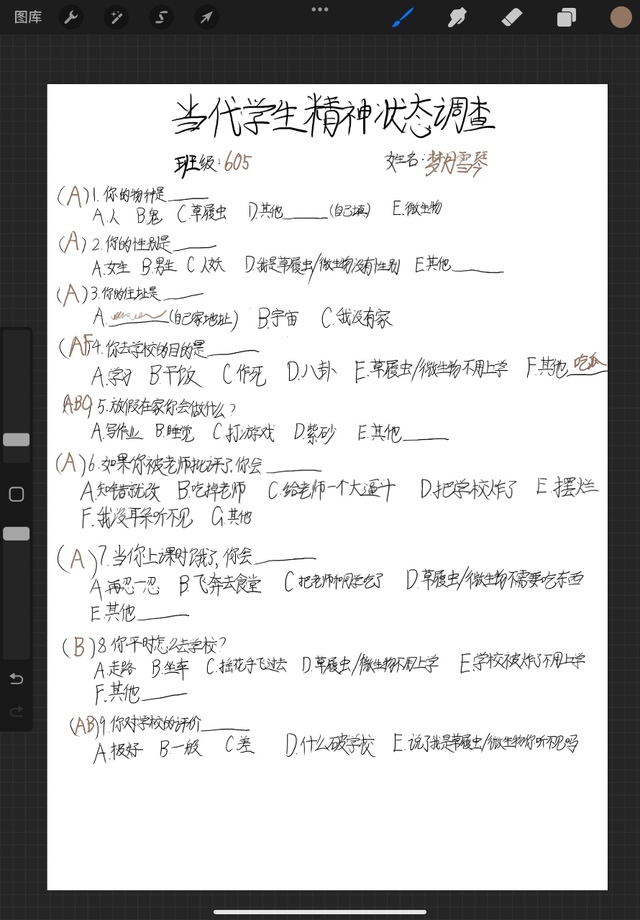 图库
当代学生精神状态调查
班级:605 姓名:梦月雪琴
(A)1.你的物种是____
A.人 B.鬼 C.草履虫 D.其他____(自己填) E.微生物
(A)2.你的性别是____
A.女生 B.男生 C.人妖 D.我是草履虫/微生物没有性别 E.其他____
(A)3.你的住址是____
A.____(自己家地址) B.宇宙 C.我没有家
(AF)4.你去学校的目的是____
A.学习 B.干饭 C.作死 D.八卦 E.草履虫/微生物不用上学 F.其他 吃瓜
(ABC)5.放假在家你会做什么?
A.写作业 B.睡觉 C.打游戏 D.紫砂 E.其他____
(A)6.如果你被老师批评了,你会____
A.知错就改 B.吃掉老师 C.给老师一个大逼斗 D.把学校炸了 E.摆烂
F.我没耳朵听不见 G.其他
(A)7.当你上课时饿了,你会____
A.再忍一忍 B.飞奔去食堂 C.把老师和同学吃了 D.草履虫/微生物不需要吃东西
E.其他____
(B)8.你平时怎么去学校?
A.走路 B.坐车 C.摇花手飞过去 D.草履虫/微生物不用上学 E.学校被炸了不用上学
F.其他____
(AB)9.你对学校的评价____
A.极好 B.一般 C.差 D.什么破学校 E.说了我是草履虫/微生物你听不见吗